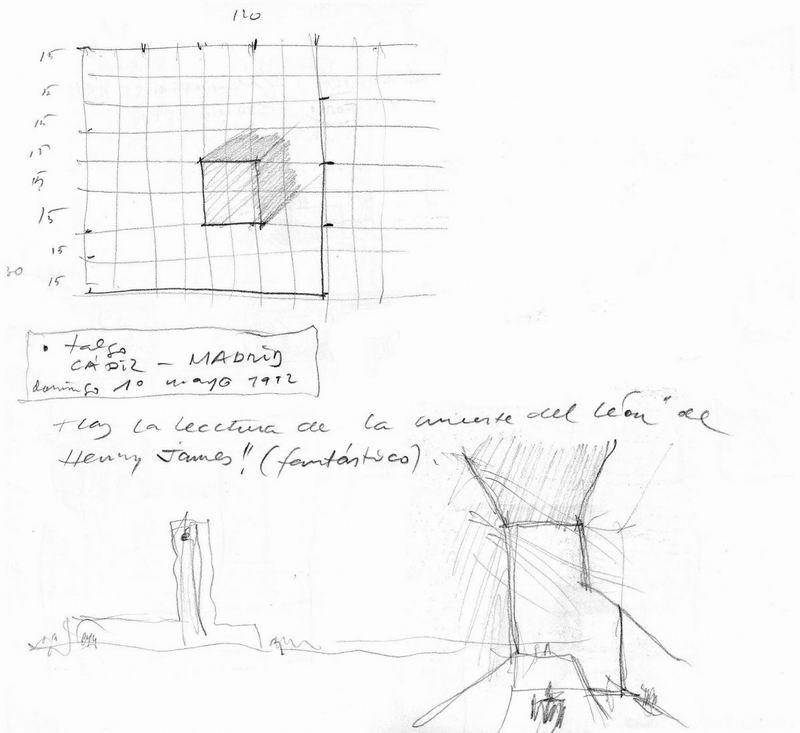 120
15
15
15
15
15
15
15
30 15
• talgo
CÁDIZ – MADRID
domingo 10 mayo 1992
Tras la lectura de la muerte del león" de
Henry James!! (fantástico).